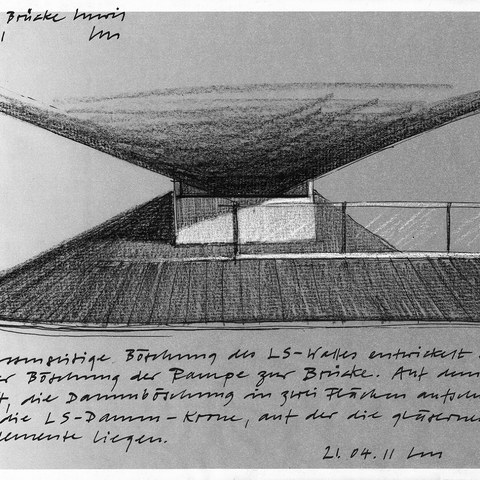 Brücke
1
Böschung des LS-Walles entwickelt
Böschung der Rampe zur Brücke. Auf dem
t, die Dammböschung in zwei Flächen
die LS-Damm-Krone, auf der die gläsernen
lemente liegen.
21.04.11